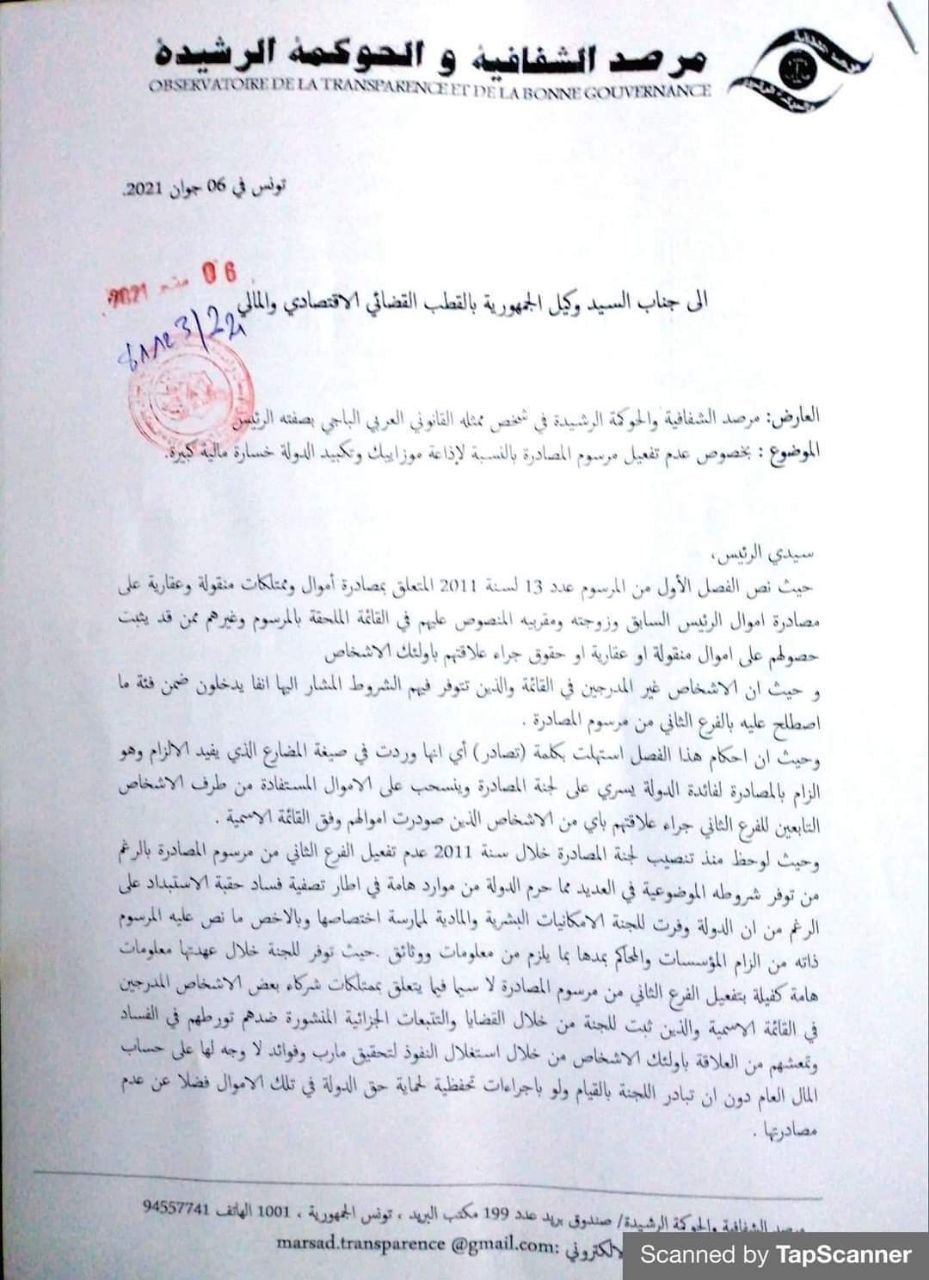 مرصد الشفافية و الحوكمة الرشيدة
OBSERVATOIRE DE LA TRANSPARENCE ET DE LA BONNE GOUVERNANCE
تونس في 06 جوان 2021.
06 2021
الى جناب السيد وكيل الجمهورية بالقطب القضائي الاقتصادي والمالي
العارض: مرصد الشفافية والحوكمة الرشيدة في شخص ممثله القانوني العربي الباجي بصفته الرئيس
الموضوع : بخصوص عدم تفعيل مرسوم المصادرة بالنسبة لإذاعة موزاييك وتكبيد الدولة خسارة مالية كبيرة.
سيدي الرئيس،
حيث نص الفصل الأول من المرسوم عدد 13 لسنة 2011 المتعلق بمصادرة أموال وممتلكات منقولة وعقارية على
مصادرة اموال الرئيس السابق وزوجته ومقربيه المنصوص عليهم في القائمة الملحقة بالمرسوم وغيرهم ممن قد يثبت
حصولهم على اموال منقولة او عقارية او حقوق جراء علاقتهم باولئك الاشخاص
و حيث ان الاشخاص غير المدرجين في القائمة والذين تتوفر فيهم الشروط المشار اليها انفا يدخلون ضمن فئة ما
اصطلح عليه بالفرع الثاني من مرسوم المصادرة .
وحيث ان احكام هذا الفصل استهلت بكلمة (تصادر) أي انها وردت في صيغة المضارع الذي يفيد الالزام وهو
الزام بالمصادرة لفائدة الدولة يسري على لجنة المصادرة وينسحب على الاموال المستفادة من طرف الاشخاص
التابعين للفرع الثاني جراء علاقتهم باي من الاشخاص الذين صودرت اموالهم وفق القائمة الاسمية .
وحيث لوحظ منذ تنصيب لجنة المصادرة خلال سنة 2011 عدم تفعيل الفرع الثاني من مرسوم المصادرة بالرغم
من توفر شروطه الموضوعية في العديد مما حرم الدولة من موارد هامة في اطار تصفية فساد حقبة الاستبداد على
الرغم من ان الدولة وفرت للجنة الامكانيات البشرية والمادية لممارسة اختصاصها وبالاخص ما نص عليه المرسوم
ذاته من الزام المؤسسات والمحاكم بمدها بما يلزم من معلومات ووثائق .حيث توفر للجنة خلال عهدتها معلومات
هامة كفيلة بتفعيل الفرع الثاني من مرسوم المصادرة لا سيما فيما يتعلق بممتلكات شركاء بعض الاشخاص المدرجين
في القائمة الاسمية والذين ثبت للجنة من خلال القضايا والتتبعات الجزائية المنشورة ضدهم تورطهم في الفساد
وتمعشهم من العلاقة باولئك الاشخاص من خلال استغلال النفوذ لتحقيق مارب وفوائد لا وجه لها على حساب
المال العام دون ان تبادر اللجنة بالقيام ولو باجراءات تحفظية لحماية حق الدولة في تلك الاموال فضلا عن عدم
مصادرتها .
مرصد الشفافية والحوكمة الرشيدة/ صندوق بريد عدد 199 مكتب البريد ، تونس الجمهورية ، 1001 الهاتف 94557741
marsad.transparence @gmail.com:
Scanned by TapScanner